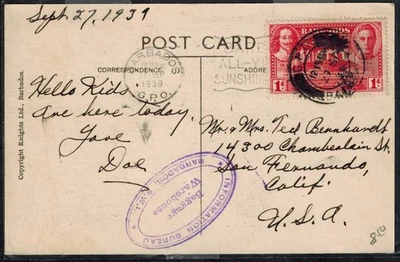 Sept 27, 1939
POST CARD.
CORRESPONDENCE
ADDRESS
BARBADOS
1939
G.P.O.
SUNSHINE
BARBADOS
1d 1d
Hello Kids
Are here today.
Love
Doe
Mr. & Mrs. Ted Bernhardt
14300 Chamberlain St.
San Fernando,
Calif.
U.S.A.
INFORMATION BUREAU
Baggage
Warehouse
BARBADOS, B.W.I.
Copyright Knights Ltd., Barbados.